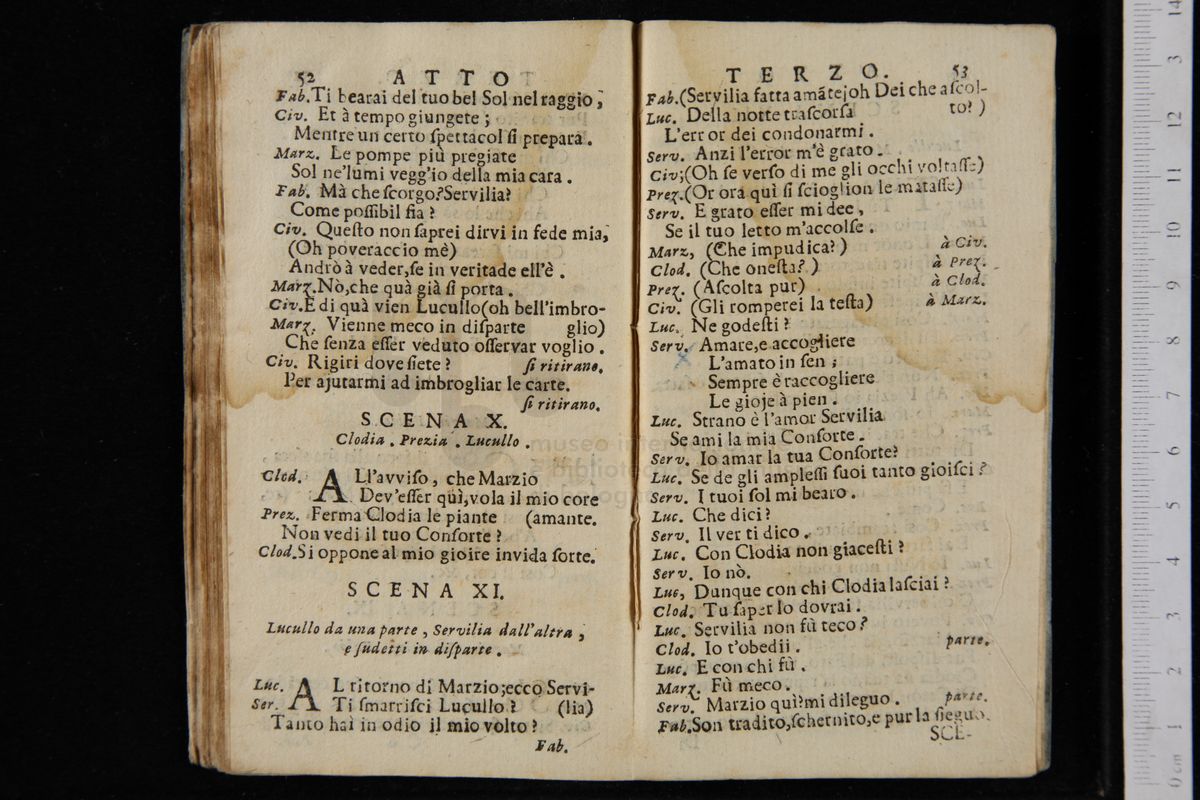 52 ATTO
Fab. Ti bearai del tuo bel Sol nel raggio;
Civ. Et à tempo giungete;
Mentre un certo ſpettacol ſi prepara.
Marz. Le pompe più pregiate
Sol ne'lumi vegg'io della mia cara.
Fab. Mà che ſcorgo? Servilia?
Come poſſibil fia?
Civ. Queſto non ſaprei dirvi in fede mia,
(Oh poveraccio mè)
Andrò à veder, ſe in veritade ell'è.
Marz. Nò, che quà già ſi porta.
Civ. E di quà vien Lucullo (oh bell'imbro-
Marz. Vienne meco in diſparte glio)
Che ſenza eſſer veduto oſſervar voglio.
Civ. Rigiri dove ſiete? ſi ritirano.
Per ajutarmi ad imbrogliar le carte.
ſi ritirano.
SCENA X.
Clodia. Prezia. Lucullo.
Clod. ALl'avviſo, che Marzio
Dev'eſſer quì, vola il mio core
Prez. Ferma Clodia le piante (amante.
Non vedi il tuo Conſorte?
Clod. Si oppone al mio gioire invida ſorte.
SCENA XI.
Lucullo da una parte, Servilia dall'altra,
e ſudetti in diſparte.
Luc. AL ritorno di Marzio; ecco Servi-
Ser. Ti ſmarriſci Lucullo? (lia)
Tanto hai in odio il mio volto?
Fab.
TERZO. 53
Fab. (Servilia fatta amãte, oh Dei che aſcol-
Luc. Della notte traſcorſa to?)
L'error dei condonarmi.
Serv. Anzi l'error m'è grato.
Civ; (Oh ſe verſo di me gli occhi voltaſſe)
Prez. (Or ora quì ſi ſcioglion le mataſſe)
Serv. E grato eſſer mi dee,
Se il tuo letto m'accolſe.
Marz, (Che impudica?) à Civ.
Clod. (Che oneſta?) à Prez.
Prez. (Aſcolta pur) à Clod.
Civ. (Gli romperei la teſta) à Marz.
Luc. Ne godeſti?
Serv. Amare, e accogliere
L'amato in ſen;
Sempre è raccogliere
Le gioje à pien.
Luc. Strano è l'amor Servilia
Se ami la mia Conſorte.
Serv. Io amar la tua Conſorte?
Luc. Se de gli ampleſſi ſuoi tanto gioiſci?
Serv. I tuoi ſol mi bearo.
Luc. Che dici?
Serv. Il ver ti dico.
Luc. Con Clodia non giaceſti?
Serv. Io nò.
Luc, Dunque con chi Clodia laſciai?
Clod. Tu ſaper lo dovrai.
Luc. Servilia non fù teco?
Clod. Io t'obedii. parte.
Luc. E con chi fù.
Marz. Fù meco.
Serv. Marzio quì? mi dileguo. parte.
Fab. Son tradito, ſchernito, e pur la ſieguo.
SCE-
museo
0 cm 1 2 3 4 5 6 7 8 9 10 11 12 13 14